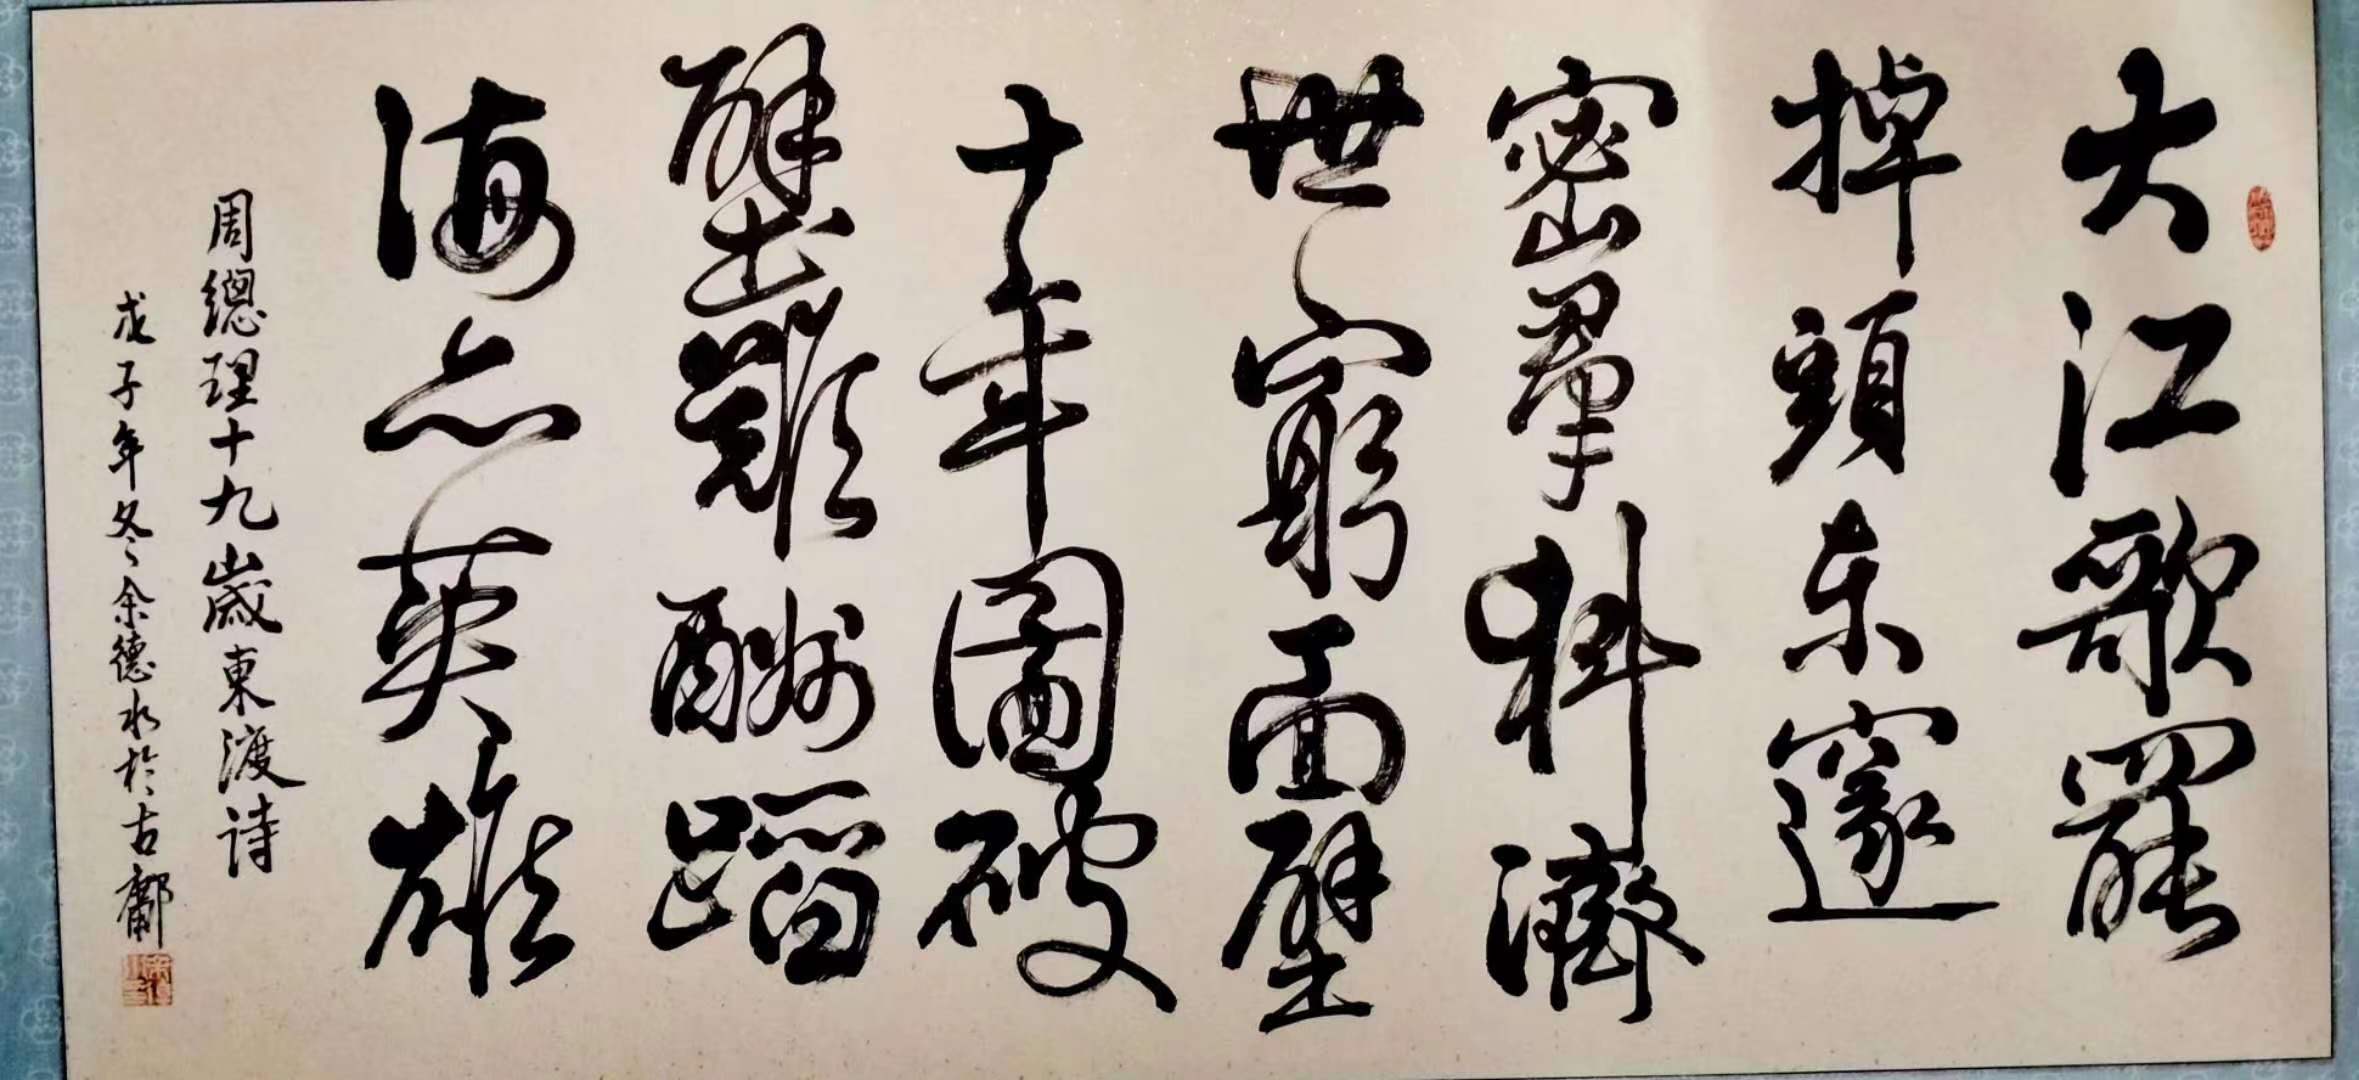 大江歌罷
掉頭东邃
密羣科濟
世窮面壁
十年圖破
壁難酬蹈
海亦英雄
周總理十九歲東渡詩
戊子年冬余德水於古鄘